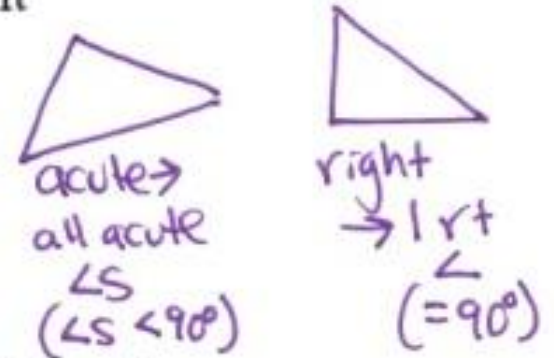 acute→
all acute
∠s
(∠s <90°)
right
→ 1 rt
∠
(=90°)